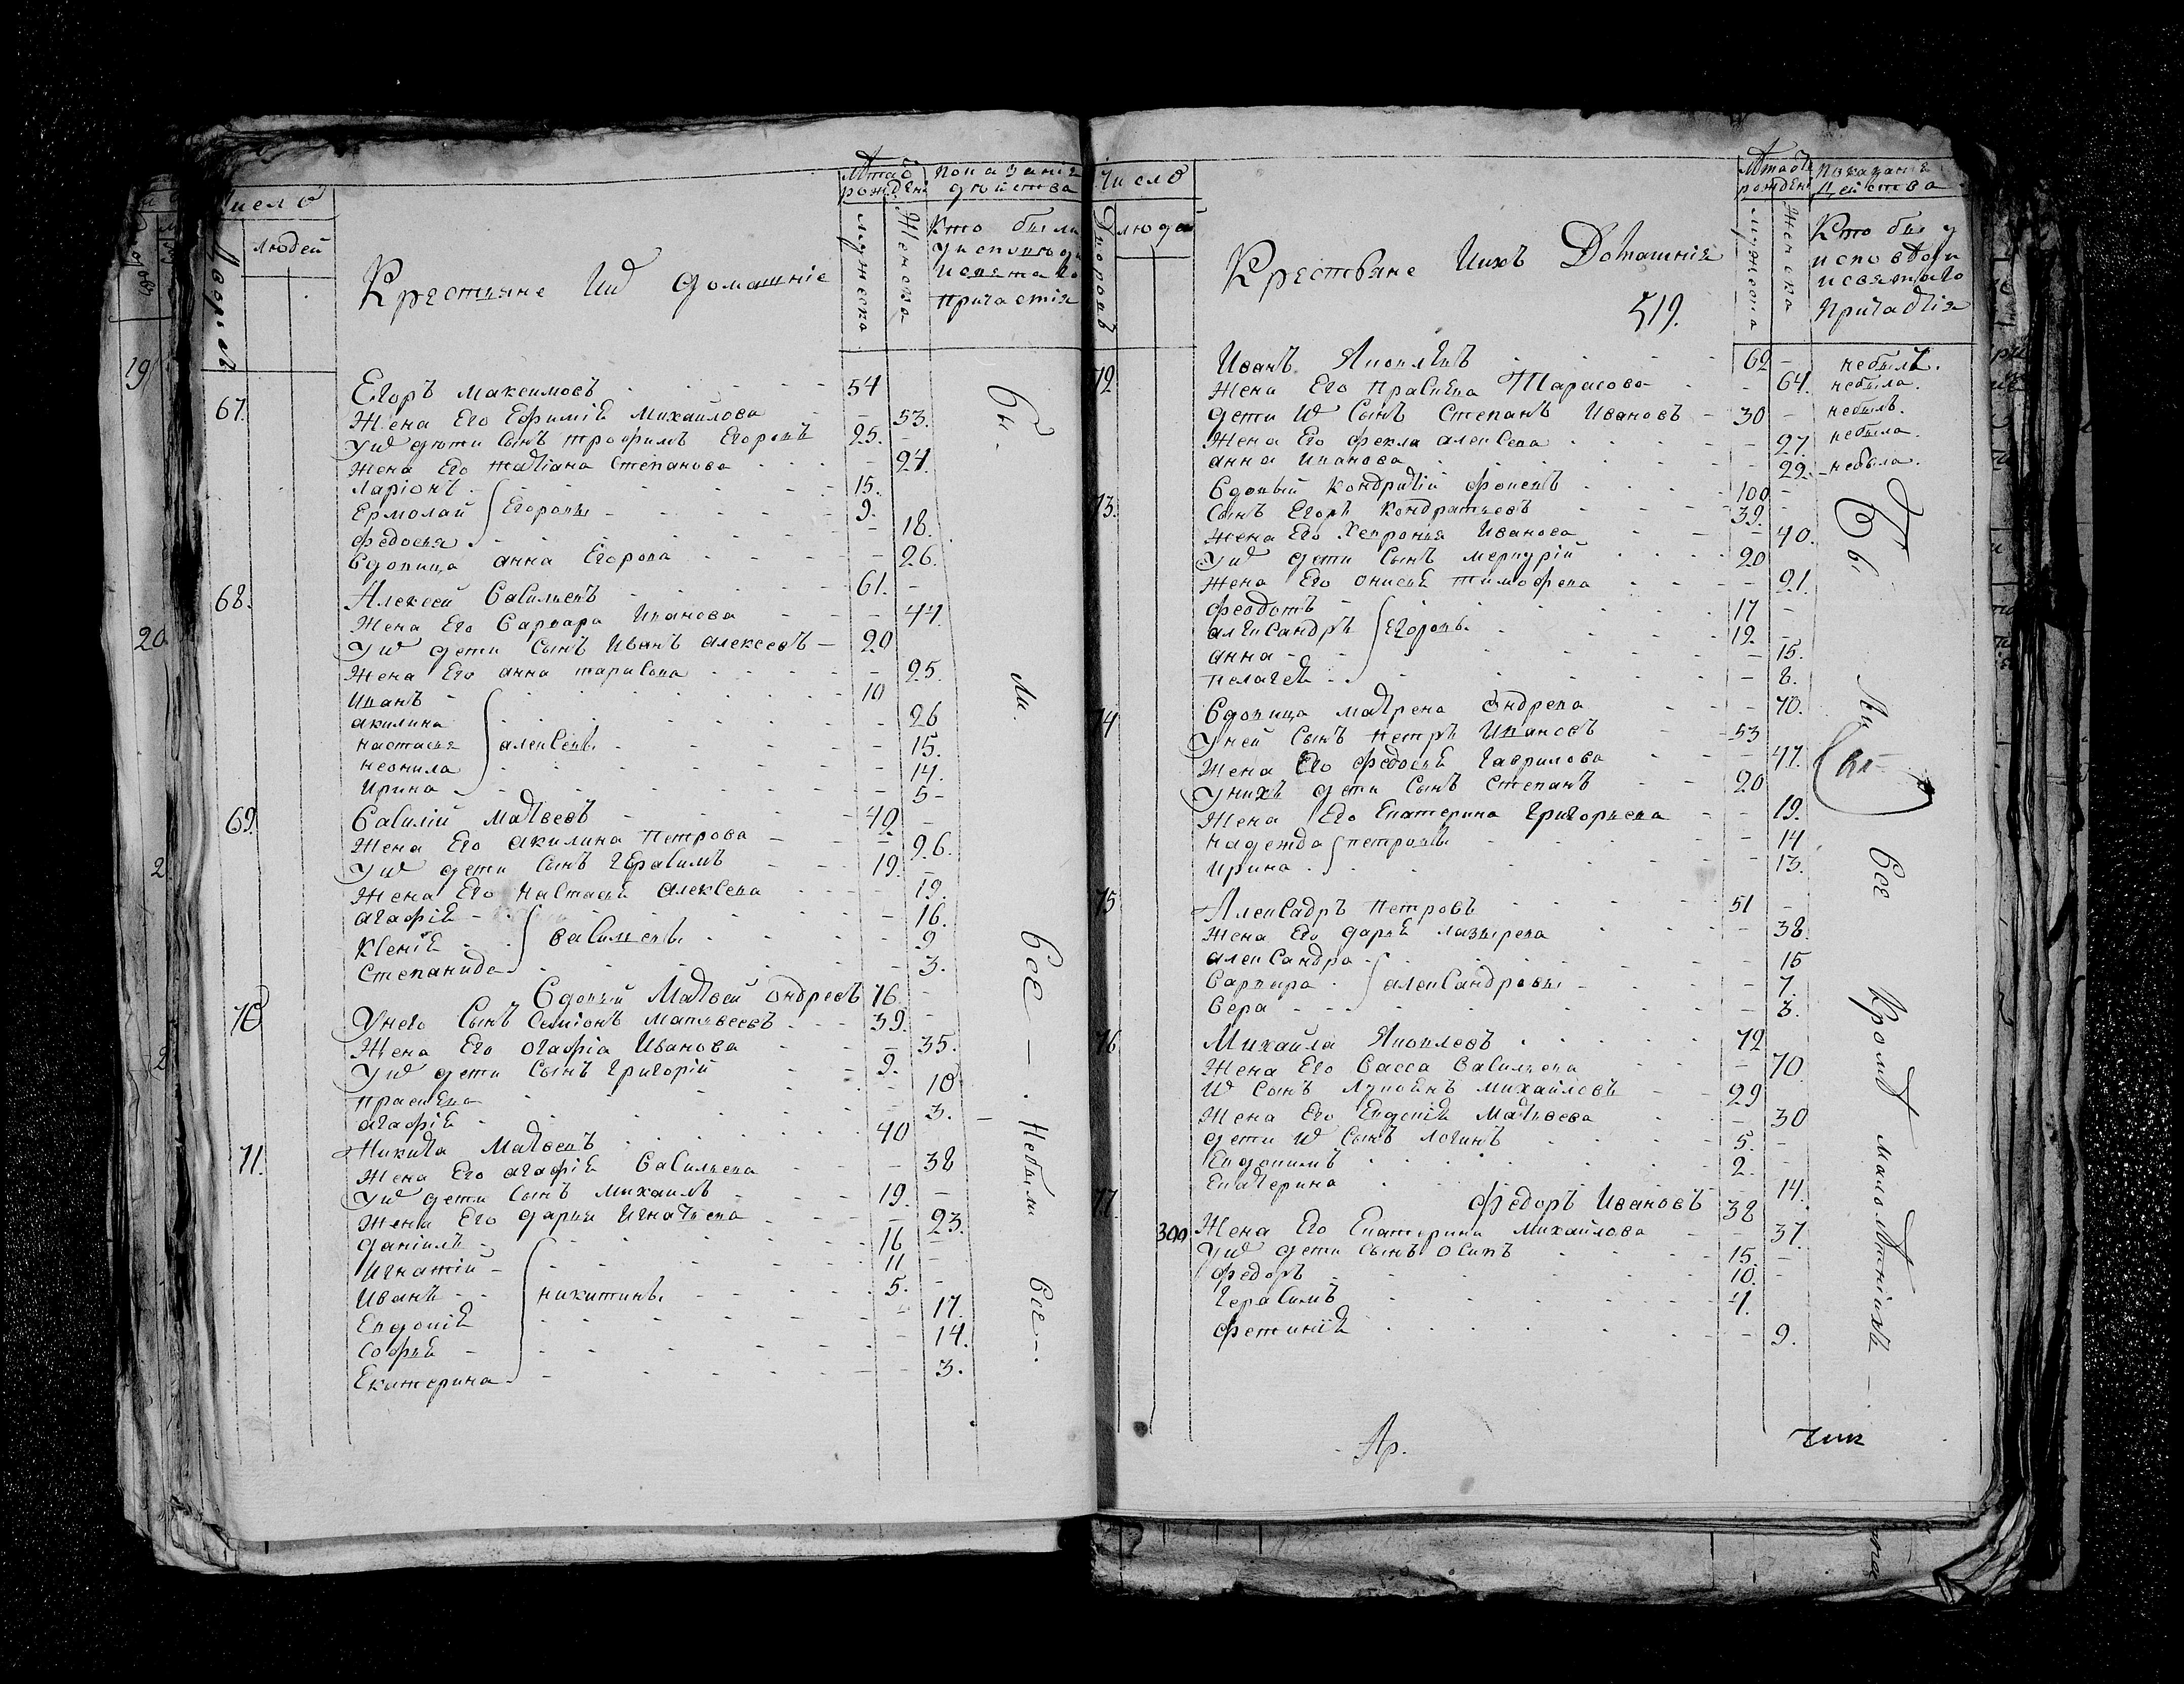 Число
людей
Дворовъ
Крестьяне Ихъ домашніе
Лѣта ѿ рожденія
мужеска
Женска
показаніе действа
Кто были
у исповеди
и святаго
причастія
67. Егоръ Максимовъ 54
Жена Его Ефиміѣ Михайлова 53.
У них дети Сынъ трофимъ Егоровъ 25.
Жена Его татіана Степанова 24.
Ларіонъ 15.
Ермолай Егоровы 9.
федосья 18.
Вдовица анна Егорова 26.
68. Алексей Васильевъ 61.
Жена Его Варвара Иванова 44.
У них дети Сынъ Иванъ алексеевъ 20
Жена Его анна тарасова 25.
Иванъ 10
акилина 26
настасья алексевы 15.
неонила 14.
Ирина 5
69. Василій Матвеевъ 49
Жена Его акилина Петрова 26.
У них дети Сынъ Герасимъ 19.
Жена Его Настасьѣ алексева 19.
агафіѣ 16.
Ксеніѣ васильевы 9
Степанида 3.
70 Вдовый Матвей ондреевъ 76.
Унего Сынъ Семіонъ матвеевъ 39.
Жена Его огафіа Иванова 35.
У них дети Сынъ Григорій 9.
праскева 10
агафіѣ 3.
71. Никита Матвеевъ 40
Жена Его агафіѣ Васильева 38
У них дети Сынъ Михаилъ 19.
Жена Его дарья Игнатьева 23.
даніилъ 16
Игнатій 11
Иванъ никитины 5.
Евдокіѣ 17.
Софьѣ 14.
Екатерина 3.
Бы
ли
Все
Небыли Все
Число
Дворовъ
людей
Крестьяне Ихъ Домашніе
519.
Лѣта ѿ рожденія
мужеска
женска
Показаніе Действа
Кто был у
исповеди
и святаго
Причастія
72 Иванъ Яковлевъ 62 небылъ.
Жена Его Праскева Тарасова 64. небыла.
дети их Сынъ Степанъ Ивановъ 30 небылъ.
Жена Его фекла алексева 27. небыла.
анна Иванова 22. небыла.
73. Вдовый Кондратій фокеевъ 100
Сынъ Егоръ Кондратьевъ 39.
Жена Его Хевронья Иванова 40.
У них дети Сынъ меркурій 20
Жена Его онисьѣ тимофеева 21.
феодотъ 17
александръ Егоровы 12.
анна 15.
пелагеѣ 8.
74 Вдовица матрена ондреева 70.
У ней Сынъ петръ Ивановъ 53
Жена Его федосьѣ Гаврилова 47.
У нихъ дети Сынъ Степанъ 20
Жена Его Екатерина Григорьева 19.
надежда петровы 14
ирина 13.
75 Александръ Петровъ 51
Жена Его дарьѣ лазырева 38.
александра 15
Варвара александровы 7.
Вера 3.
76 Михайла Яковлевъ 72
Жена Его Васса Васильева 70
их Сынъ Лукоянъ михайловъ 29
Жена Его Евдокіѣ Матвеева 30
дети их Сынъ логинъ 5.
Евдокимъ 2.
Екатерина 14.
77. Федоръ Ивановъ 38
300 Жена Его Екатерина михайлова 37.
У них дети Сынъ осипъ 15.
федоръ 10.
Герасимъ 4.
фетиніѣ 9.
Бы
ли
все
Кромѣ малолѣтнихъ